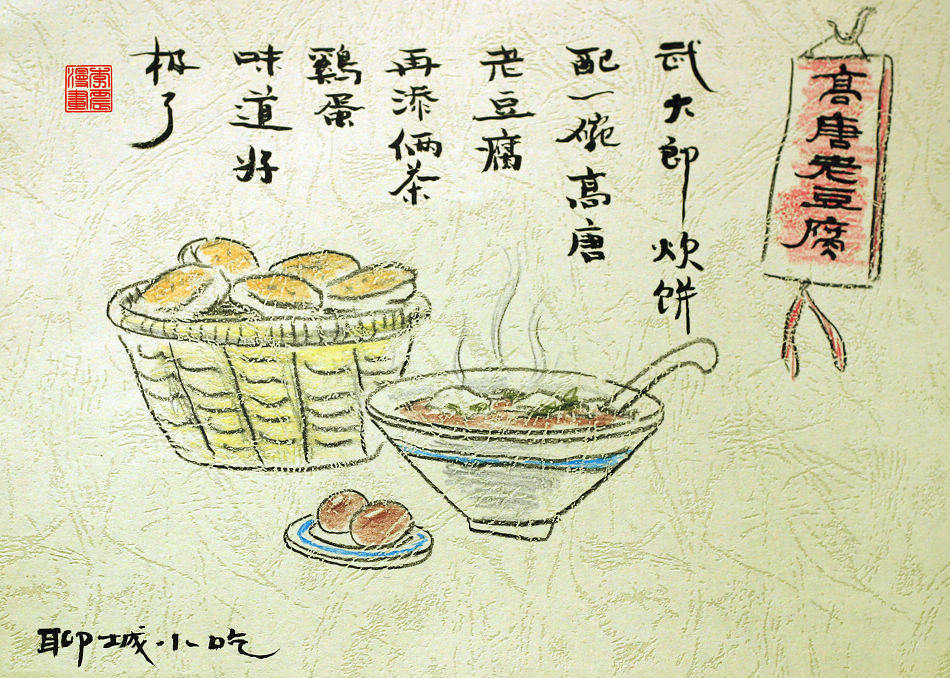 高唐老豆腐
武大郎炊饼
配一碗高唐
老豆腐
再添俩茶
鷄蛋
味道好
极了
漫畫
聊城小吃